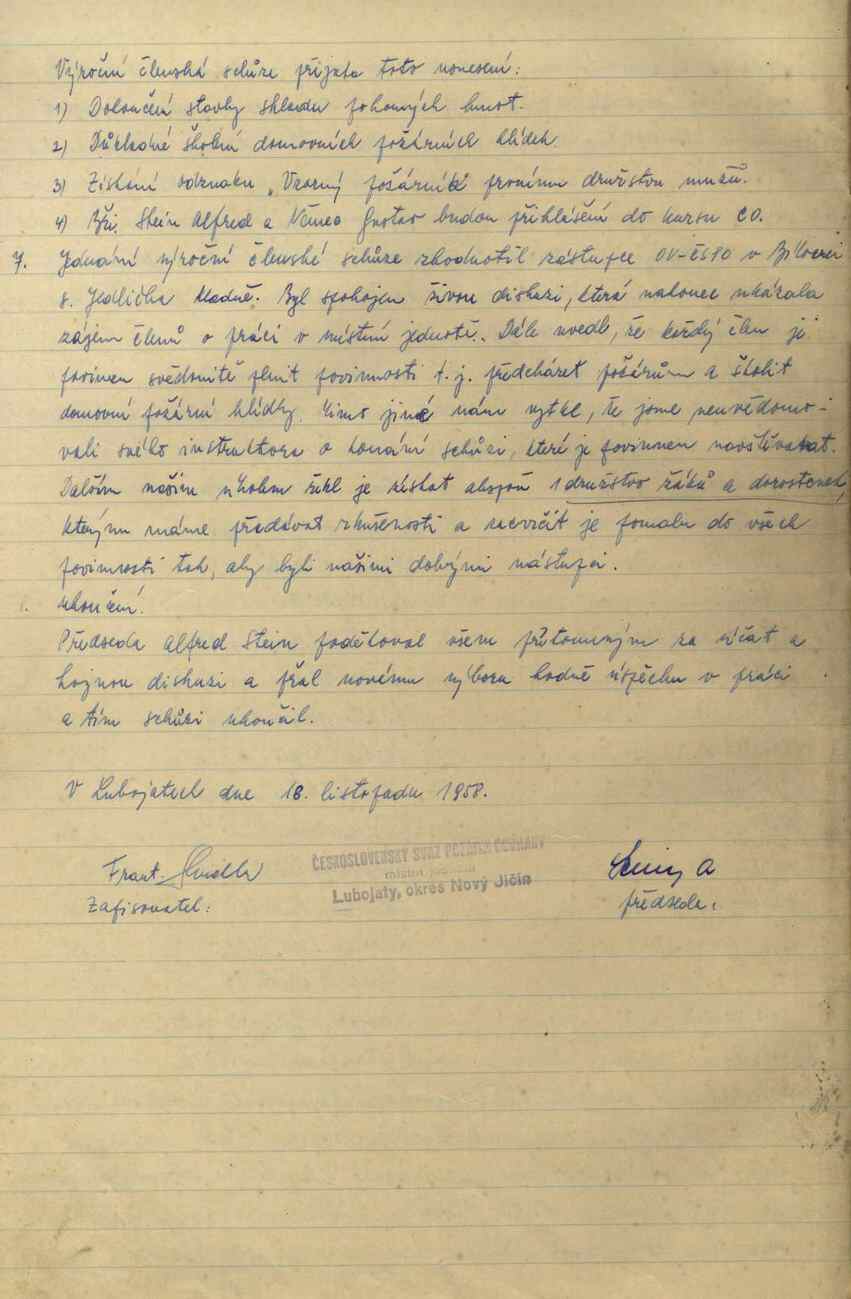 Výroční členská schůze přijata toto usnesení:
1) Dokončení stavby skladu pohonných hmot.
2) Důkladné školení domovních požárních hlídek
3) Získání odznaku „Vzorný požárník" prvnímu družstvu mužů.
4) Bři. Stein Alfred a Němec Gustav budou přihlášeni do kursu CO.
7. Jednání výroční členské schůze zhodnotil zástupce OV-ČSPO v Bílovci
s. Jedlička kladně. Byl spokojen živou diskusí, která nakonec ukázala
zájem členů o práci v místní jednotě. Dále uvedl, že každý člen je
povinen svědomitě plnit povinnosti t. j. předcházet požárům a školit
domovní požární hlídky. Mimo jiné nám vytkl, že jsme neuvědomo-
vali svého instruktora o konání schůzí, které je povinnen navštěvovat.
Dalším naším úkolem řekl je získat alespoň 1 družstvo žáků a dorostenek,
kterým máme předávat zkušenosti a zacvičit je pomalu do všech
povinností tak, aby byli našimi dobrými nástupci.
ukončení.
Předseda Alfred Stein poděkoval všem přítomným za účast a
hojnou diskusi a přál novému výboru hodně úspěchu v práci
a tím schůzi ukončil.
V Lubojatech dne 18. listopadu 1958.
ČESKOSLOVENSKÝ SVAZ POŽÁRNÍ OCHRANY
místní jednota
Lubojaty, okres Nový Jičín
Frant.
Zapisovatel:
Stein A
předseda: